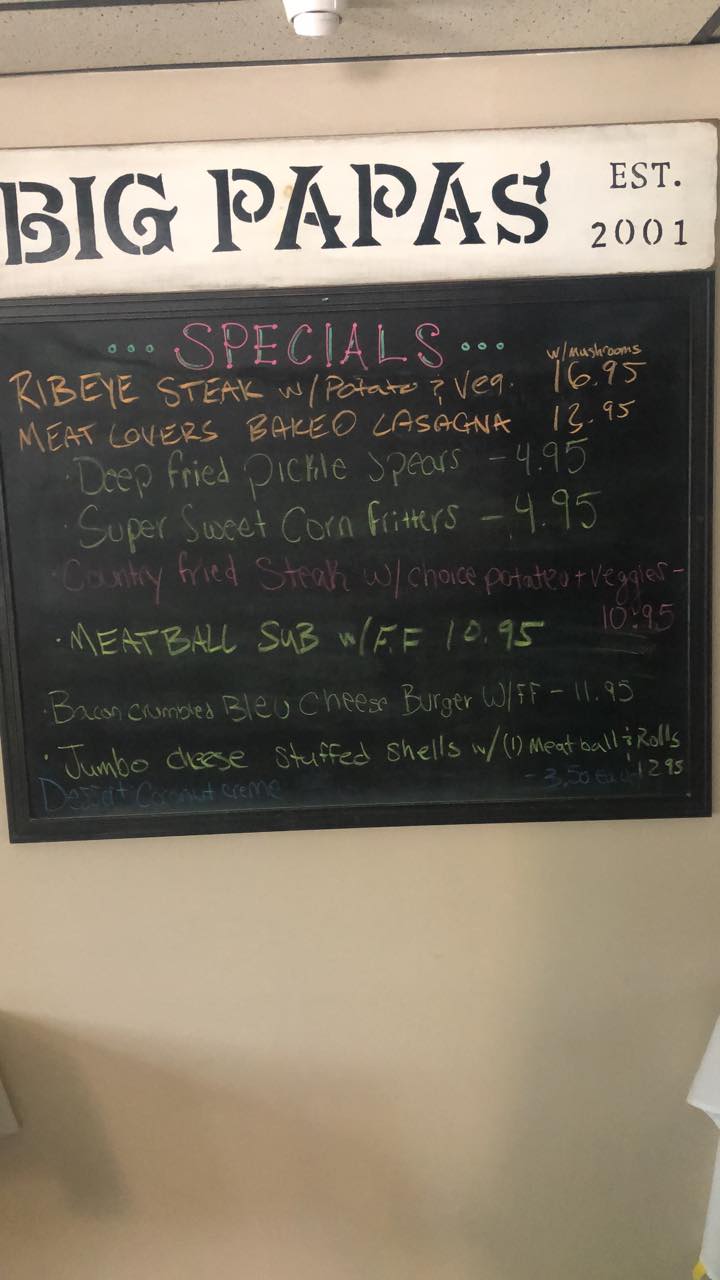 BIG PAPAS EST. 2001
... SPECIALS ...
w/Mushrooms
RIBEYE STEAK w/Potato & Veg. 16.95
MEAT LOVERS BAKED LASAGNA 13.95
· Deep fried pickle Spears - 4.95
· Super Sweet Corn fritters - 4.95
· Country fried Steak w/choice potatoe + Veggies -
10.95
· MEATBALL SUB w/F.F 10.95
· Bacon crumbled Bleu Cheese Burger W/FF - 11.95
· Jumbo cheese stuffed shells w/(1) Meatball & Rolls
12.95
Desert Coconut creme - 3.50